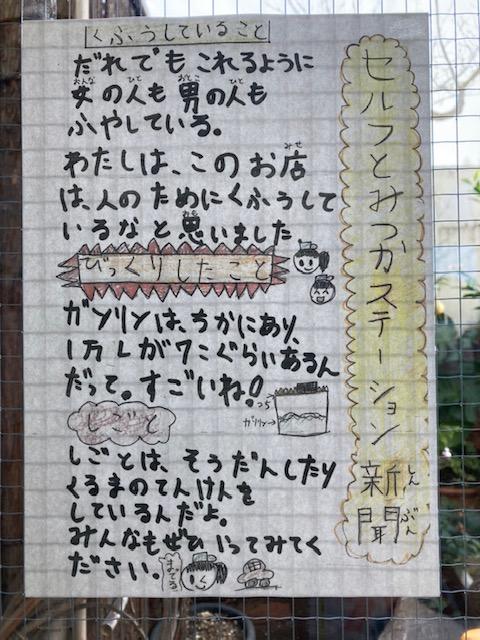 セルフとみつかステーション新聞
しんぶん
くふうしていること
だれでもこれるように
女の人も男の人も
おんな ひと おとこ ひと
ふやしている。
わたしは、このお店
みせ
は、人のためにくふうして
いるなと思いました
おも
びっくりしたこと
ガソリンは、ちかにあり、
1万Lが7こぐらいあるん
だって。すごいね!
つち
ガソリン→
しごと
しごとは、そうだんしたり
くるまのてんけんを
しているんだよ。
みんなもぜひいってみてく
ださい。
まってる